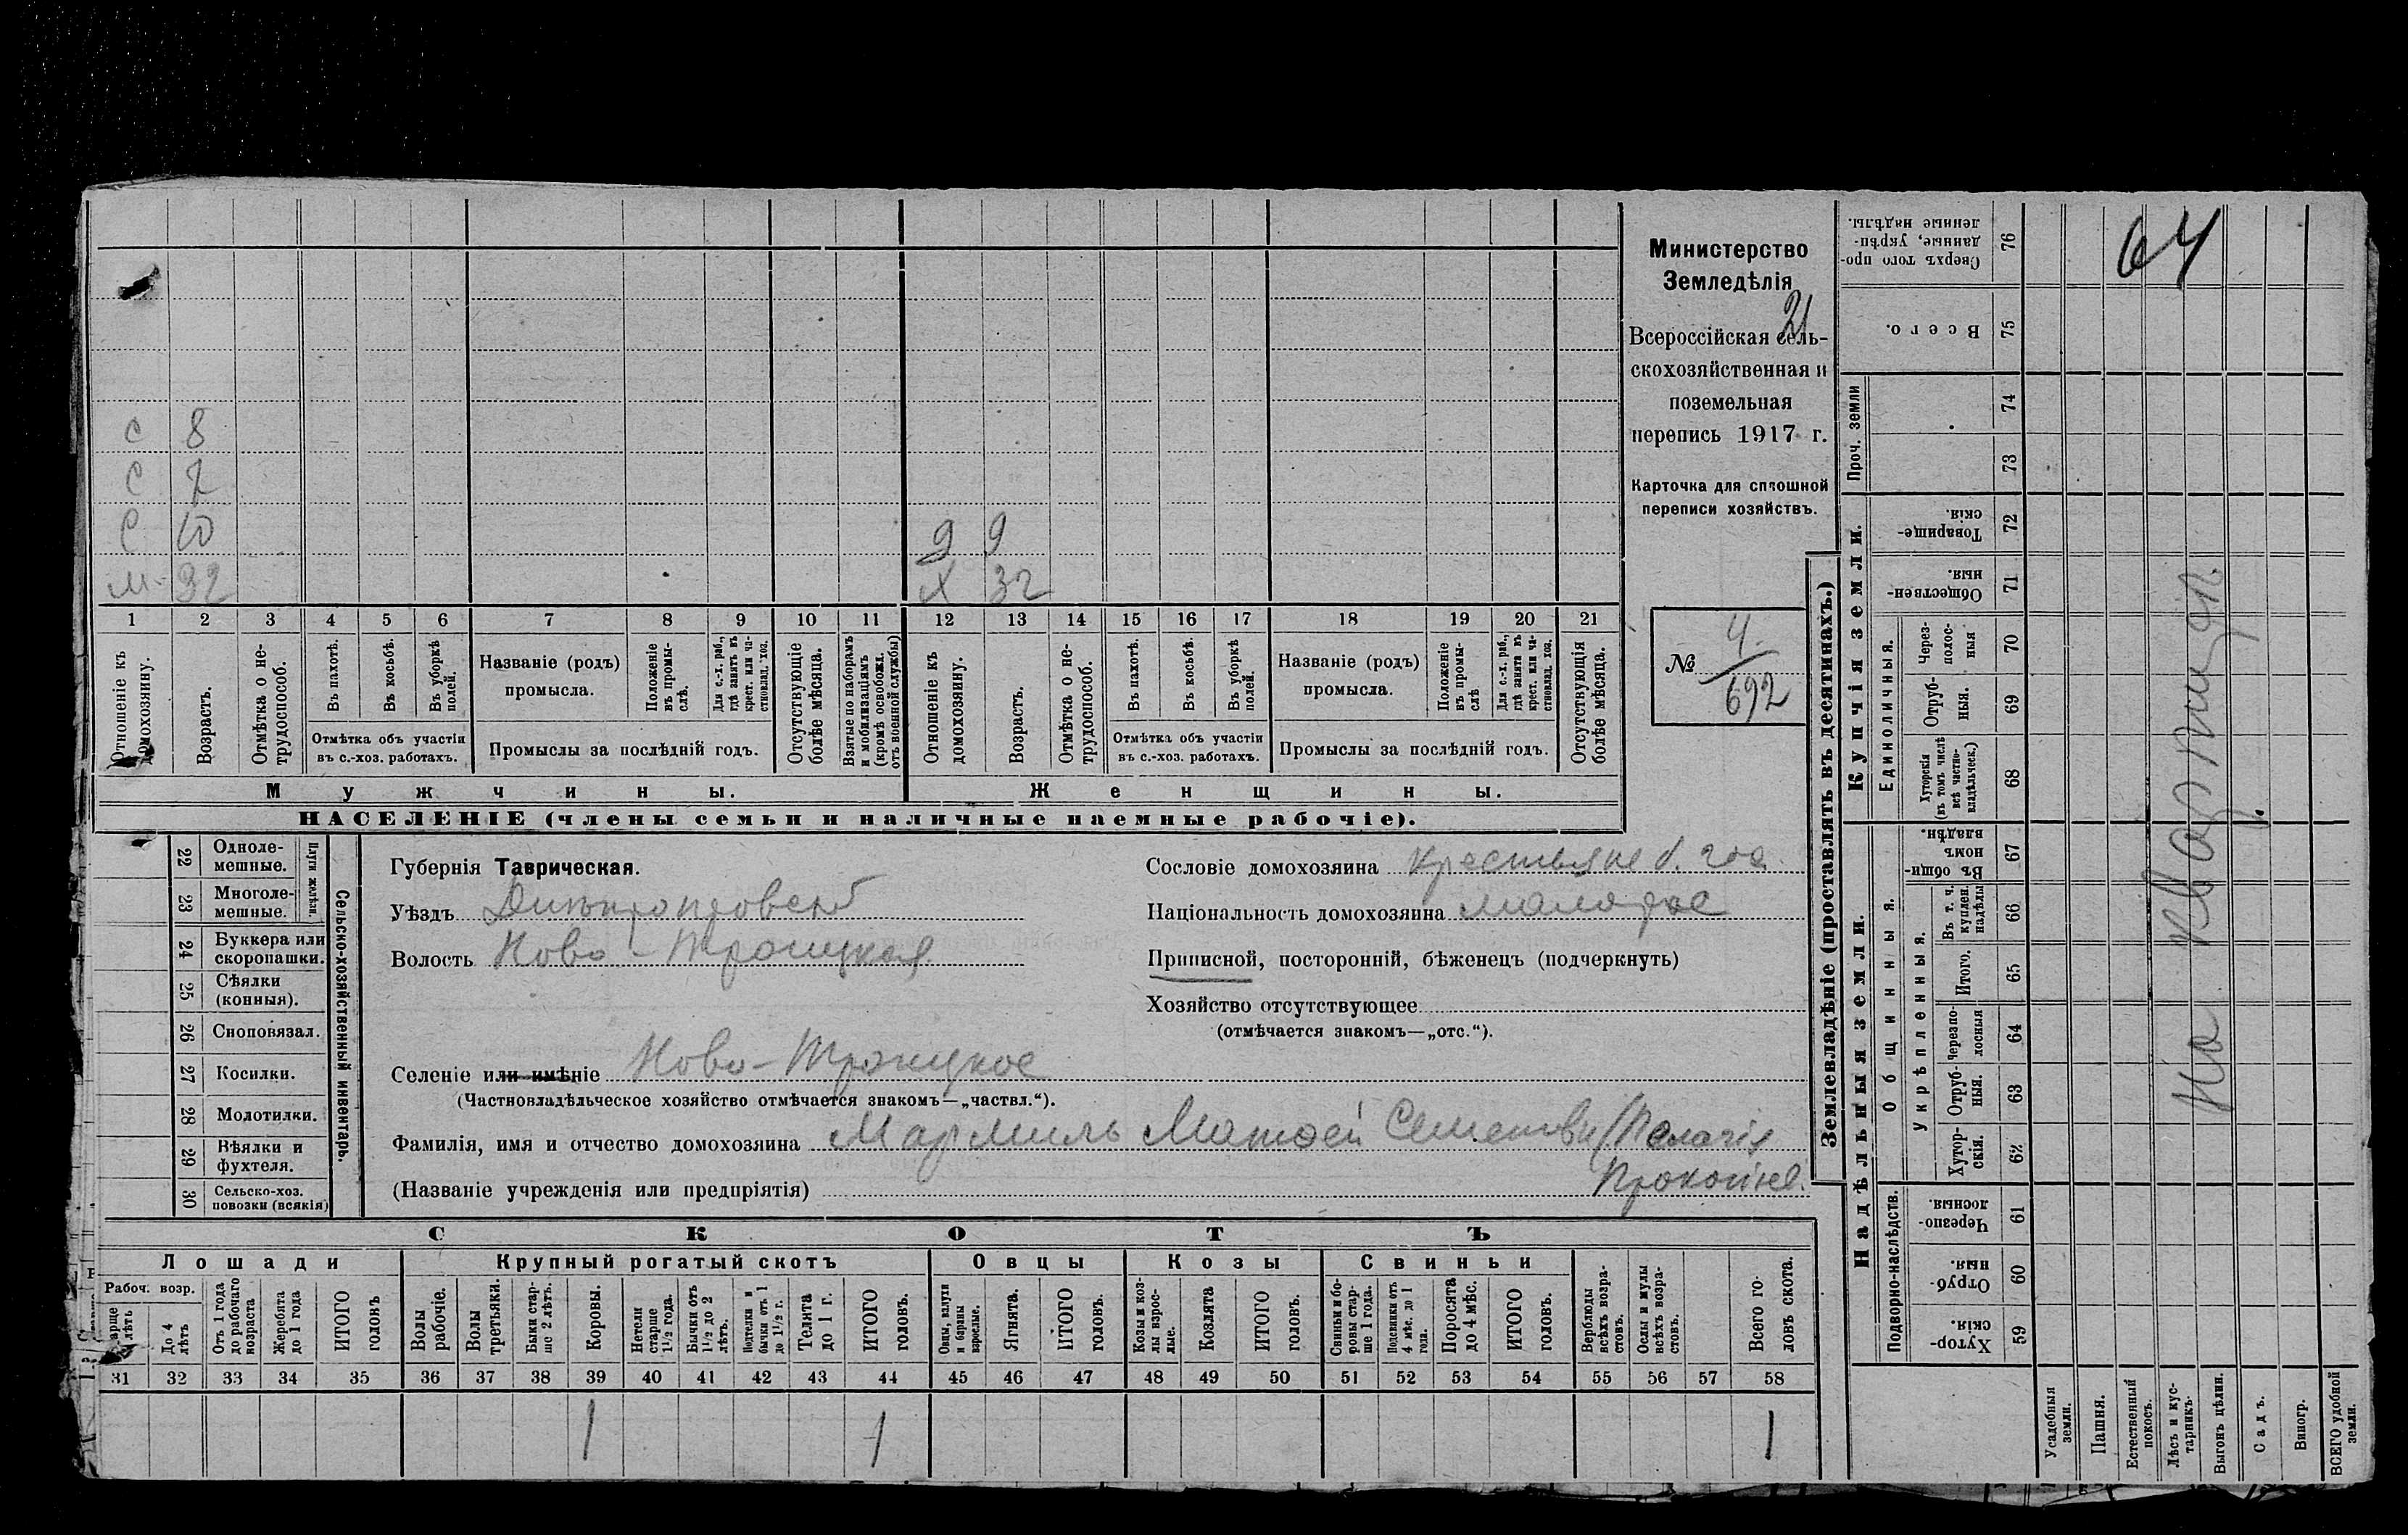 64
Министерство
Земледѣлія
21
Всероссійская сель-
скохозяйственная и
поземельная
перепись 1917 г.
Карточка для сплошной
переписи хозяйствъ.
№ 4/692
С 8
С 7
С 10
М 32
9 9
Х 32
1 2 3 4 5 6 7 8 9 10 11 12 13 14 15 16 17 18 19 20 21
Отношеніе къ домохозяину.
Возрастъ.
Отмѣтка о не-трудоспособ.
Въ пахотѣ.
Въ косьбѣ.
Въ уборкѣ полей.
Отмѣтка объ участіи
въ с.-хоз. работахъ.
Названіе (родъ)
промысла.
Положеніе въ промы-слѣ.
Для с.-х. раб., гдѣ занятъ въ крест. или ча-стновлад. хоз.
Промыслы за послѣдній годъ.
Отсутствующіе болѣе мѣсяца.
Взятые по наборамъ и мобилизаціямъ (кромѣ освобожд. отъ военной службы)
Отношеніе къ домохозяину.
Возрастъ.
Отмѣтка о не-трудоспособ.
Въ пахотѣ.
Въ косьбѣ.
Въ уборкѣ полей.
Отмѣтка объ участіи
въ с.-хоз. работахъ.
Названіе (родъ)
промысла.
Положеніе въ промы-слѣ
Для с.-х. раб., гдѣ занята въ крест. или ча-стновлад. хоз.
Промыслы за послѣдній годъ.
Отсутствующія болѣе мѣсяца.
Мужчины.
Женщины.
НАСЕЛЕНІЕ (члены семьи и наличные наемные рабочіе).
Сельско-хозяйственный инвентарь.
Плуги желѣзн.
22 Одноле-мешные.
23 Многоле-мешные.
24 Буккера или скоропашки.
25 Сѣялки (конныя).
26 Сноповязал.
27 Косилки.
28 Молотилки.
29 Вѣялки и фухтеля.
30 Сельско-хоз. повозки (всякія)
Губернія Таврическая.
Уѣздъ Днѣпровскій
Волость Ново-Троицкая
Сословіе домохозяина крестьяне б. гос.
Національность домохозяина малорос
Приписной, посторонній, бѣженецъ (подчеркнуть)
Хозяйство отсутствующее
(отмѣчается знакомъ—„отс.“).
Селеніе или имѣніе Ново-Троицкое
(Частновладѣльческое хозяйство отмѣчается знакомъ—„частвл.“).
Фамилія, имя и отчество домохозяина Мармиль Матвей Семенови/Пелагія
Прокопіев.
(Названіе учрежденія или предпріятія)
СКОТЪ
Лошади
Крупный рогатый скотъ
Овцы
Козы
Свиньи
Рабоч. возр.
До 4 лѣтъ
Отъ 1 года до рабочаго возраста
Жеребята до 1 года
ИТОГО головъ
Волы рабочіе.
Волы третьяки.
Быки стар-ше 2 лѣтъ.
Коровы.
Нетели старше 1½ года.
Бычки отъ 1½ до 2 лѣтъ.
Подтелки и бычки отъ 1 до 1½ г.
Телята до 1 г.
ИТОГО головъ.
Овцы, валухи и бараны взрослые.
Ягнята.
ИТОГО головъ.
Козы и коз-лы взрос-лые.
Козлята
ИТОГО головъ.
Свиньи и бо-ровы стар-ше 1 года.
Подсвинки отъ 4 мѣс. до 1 года.
Поросята до 4 мѣс.
ИТОГО головъ.
Верблюды всѣхъ возра-стовъ.
Ослы и мулы всѣхъ возра-стовъ.
Всего го-ловъ скота.
31 32 33 34 35 36 37 38 39 40 41 42 43 44 45 46 47 48 49 50 51 52 53 54 55 56 57 58
1 1 1
Землевладѣніе (проставлять въ десятинахъ.)
Купчія земли.
Проч. земли
Надѣльныя земли.
Единоличныя.
Общинныя.
Укрѣпленныя.
Подворно-наслѣдств.
Сверхъ того про-данные, укрѣп-ленные надѣлы. 76
Всего. 75
74
73
Товарище-скія. 72
Обществен-ныя. 71
Через-полос-ныя 70
Отруб-ныя. 69
Хуторскія (въ томъ числѣ всѣ частно-владѣльческ.) 68
Въ общин-номъ владѣн. 67
Въ т. ч. куплен. надѣлы 66
Итого. 65
Черезпо-лосныя 64
Отруб-ныя. 63
Хутор-скія. 62
Черезпо-лосныя 61
Отруб-ныя. 60
Хутор-скія. 59
На квартирѣ.
Усадебныя земли.
Пашня.
Естественный покосъ.
Лѣсъ и кус-тарникъ.
Выгонъ цѣлин.
Садъ.
Виногр.
ВСЕГО удобной земли.